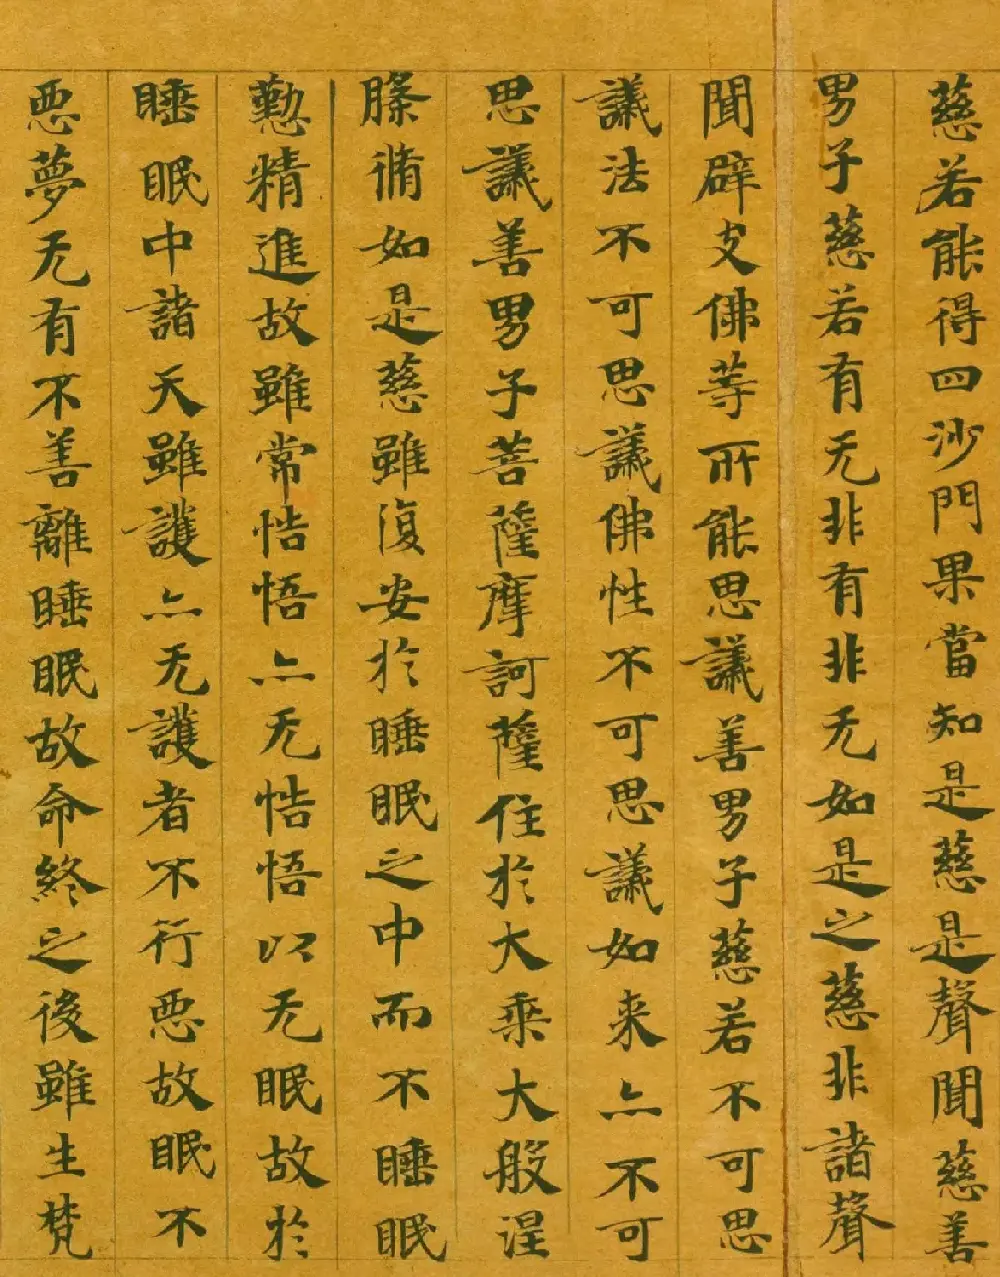 慈若能得四沙門果當知是慈是聲聞慈善
男子慈若有无非有非无如是之慈非諸聲
聞辟支佛等所能思議善男子慈若不可思
議法不可思議佛性不可思議如来亦不可
思議善男子菩薩摩訶薩住於大乗大般涅
槃脩如是慈雖復安於睡眠之中而不睡眠
懃精進故雖常悎悟亦无悎悟以无眠故於
睡眠中諸天雖護亦无護者不行惡故眠不
惡夢无有不善離睡眠故命終之後雖生梵